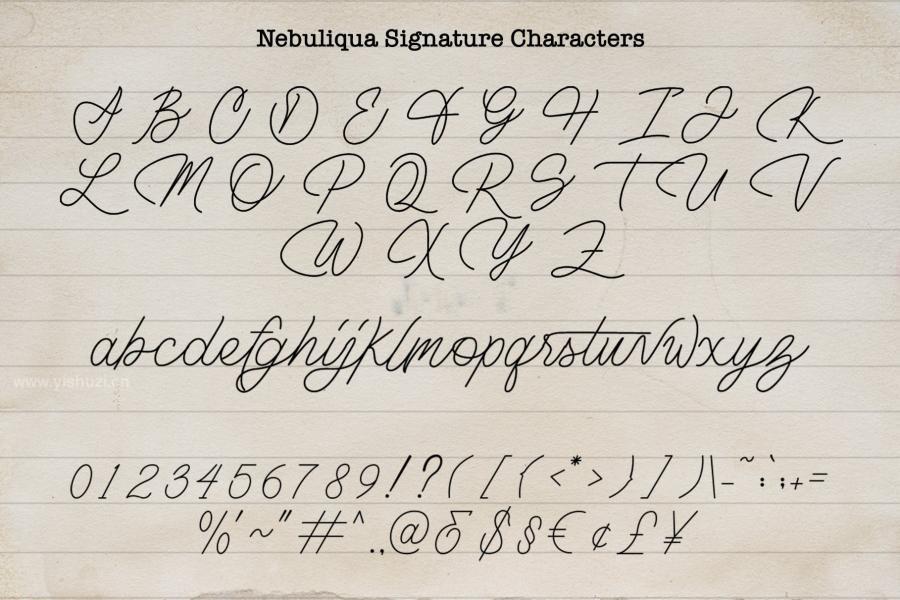 Nebuliqua Signature Characters
A B C D E F G H I J K
L M O P Q R S T U V
W X Y Z
abcdefghijklmopqrstuvwxyz
www.yishuzi.cn
0123456789!?([{<*>}])\-~:`;+=
%'~"#^.,@&$§€¢£¥